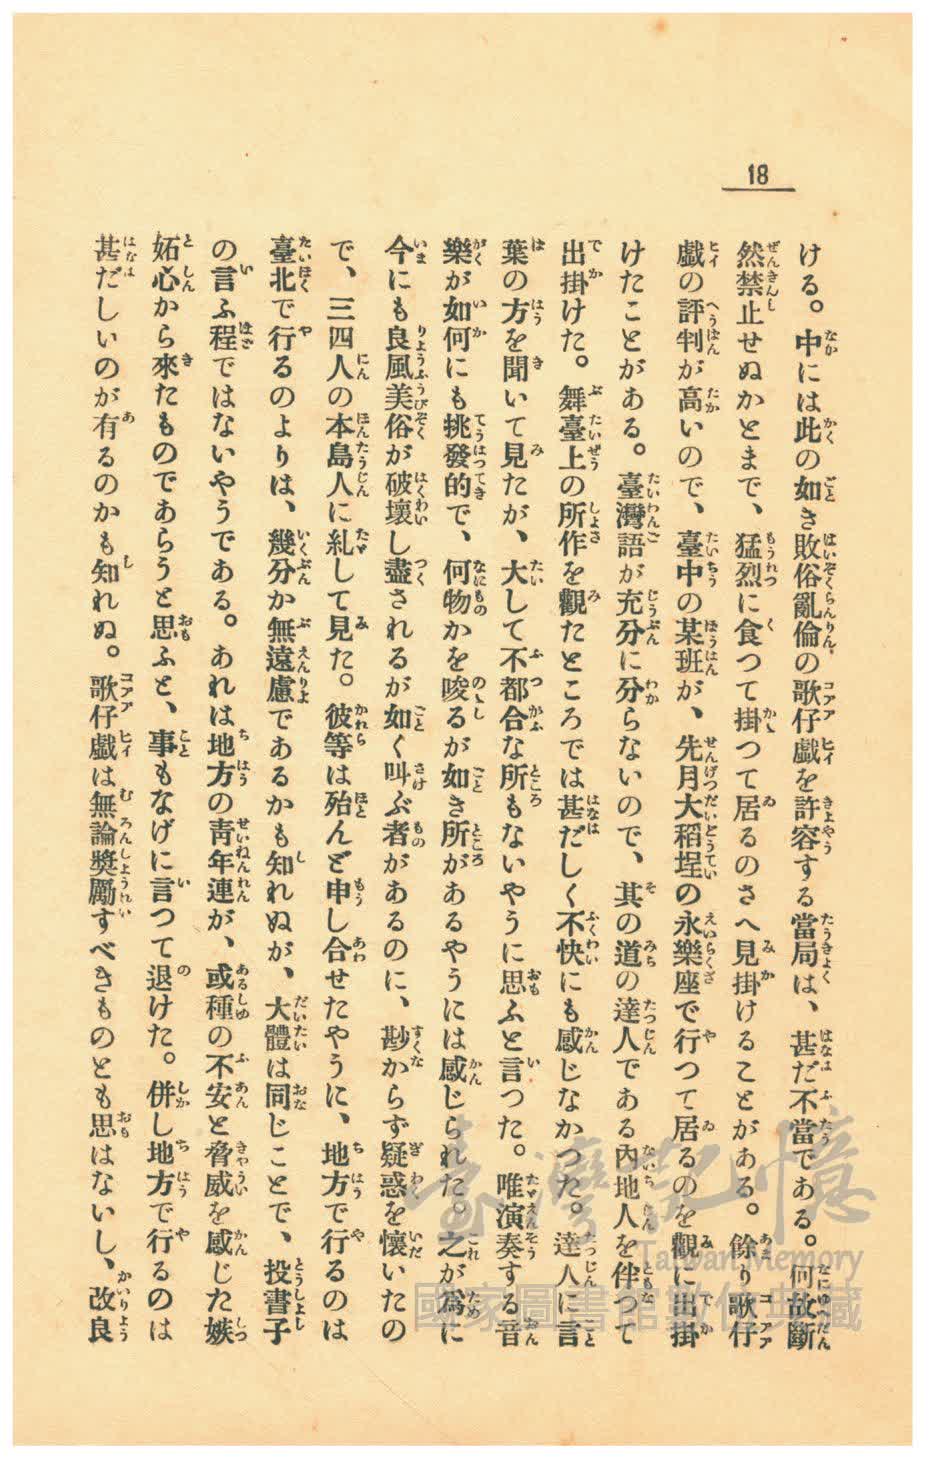 18
ける。中には此の如き敗俗亂倫の歌仔戲を許容する當局は、甚だ不當である。何故斷
然禁止せぬかとまで、猛烈に食つて掛つて居るのさへ見掛けることがある。餘り歌仔
戲の評判が高いので、臺中の某班が、先月大稻埕の永樂座で行つて居るのを觀に出掛
けたことがある。臺灣語が充分に分らないので、其の道の達人である內地人を伴つて
出掛けた。舞臺上の所作を觀たところでは甚だしく不快にも感じなかつた。達人に言
葉の方を聞いて見たが、大して不都合な所もないやうに思ふと言つた。唯演奏する音
樂が如何にも挑發的で、何物かを唆るが如き所があるやうには感じられた。之が爲に
今にも良風美俗が破壞し盡されるが如く叫ぶ者があるのに、尠からず疑惑を懷いたの
で、三四人の本島人に糺して見た。彼等は殆んど申し合せたやうに、地方で行るのは
臺北で行るのよりは、幾分か無遠慮であるかも知れぬが、大體は同じことで、投書子
の言ふ程ではないやうである。あれは地方の靑年連が、或種の不安と脅威を感じた嫉
妬心から來たものであらうと思ふと、事もなげに言つて退けた。併し地方で行るのは
甚だしいのが有るのかも知れぬ。歌仔戲は無論獎勵すべきものとも思はないし、改良
臺灣記憶
Taiwan Memory
國家圖書館數位典藏